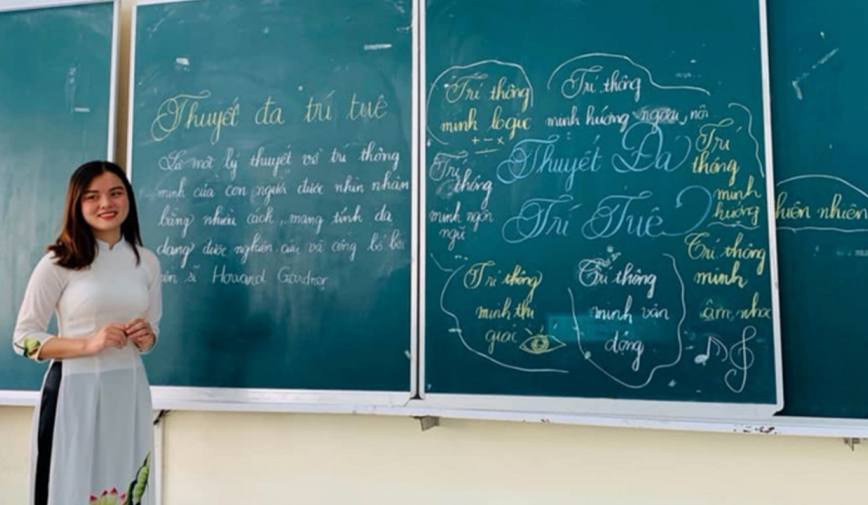 Thuyết đa trí tuệ
Là một lý thuyết về trí thông
minh của con người được nhìn nhận
bằng nhiều cách, mang tính đa
dạng được nghiên cứu và công bố bởi
sĩ Howard Gardner
Trí thông
minh logic
+ - ×
Trí thông
minh hướng ngoại, nội
Thuyết Đa
Trí Tuệ
Trí
thông
minh ngôn
ngữ
Trí
thông
minh
hướng
thiên nhiên
Trí thông
minh thị
giác
Trí thông
minh vận
động
Trí thông
minh
âm nhạc